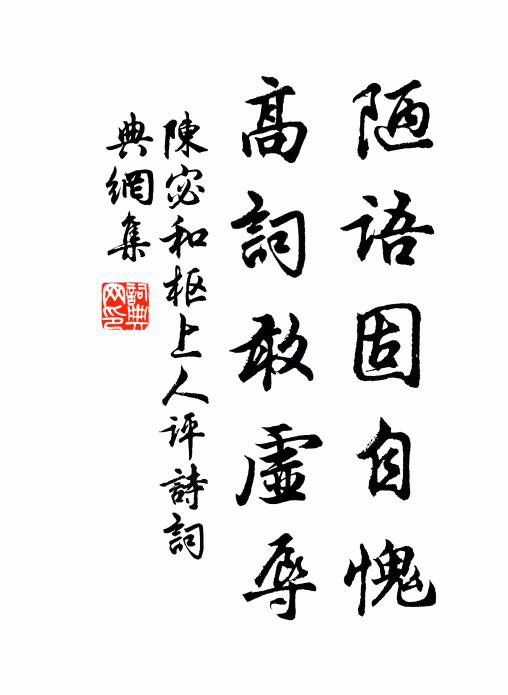 陋语固自愧
高詞敢虚辱
陳宓和柩上人评詩詞
典網集
詞典网印